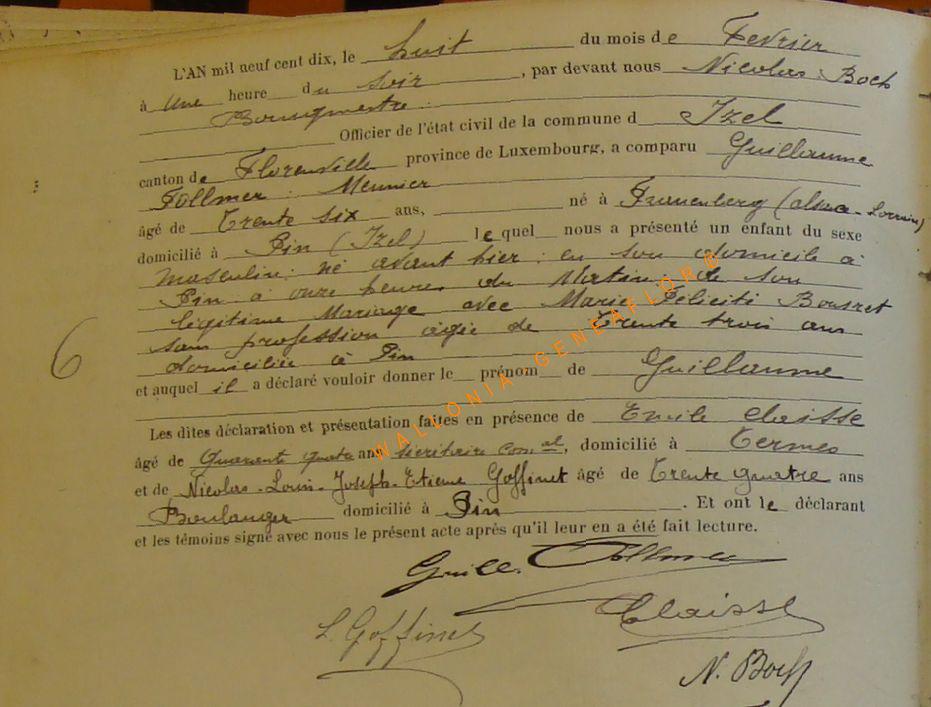 L'AN mil neuf cent dix, le huit du mois de Fevrier
à une heure du soir, par devant nous Nicolas Boch
Bourgmestre
Officier de l'état civil de la commune d Izel
canton de Florenville province de Luxembourg, a comparu Guillaume
Follmer : Meunier
âgé de Trente six ans, né à Frauenberg (alsace-Lorraine)
domicilié à Pin (Izel) lequel nous a présenté un enfant du sexe
masculin : né avant hier : en son domicile à
Pin à onze heures du Matin : de son
légitime Mariage avec Marie Félicité Bousret
sans profession âgée de Trente trois ans
domiciliée à Pin
et auquel il a déclaré vouloir donner le prénom de Guillaume
Les dites déclaration et présentation faites en présence de Emile Claisse
âgé de Quarante quatre ans secrétaire conal, domicilié à Termes
et de Nicolas-Louis-Joseph-Etienne Goffinet âgé de Trente quatre ans
Boulanger domicilié à Pin. Et ont le déclarant
et les témoins signé avec nous le présent acte après qu'il leur en a été fait lecture.
Guill. Follmer
Claisse
L. Goffinet
N. Boch
6
WALLONIA GENEAFLOR©